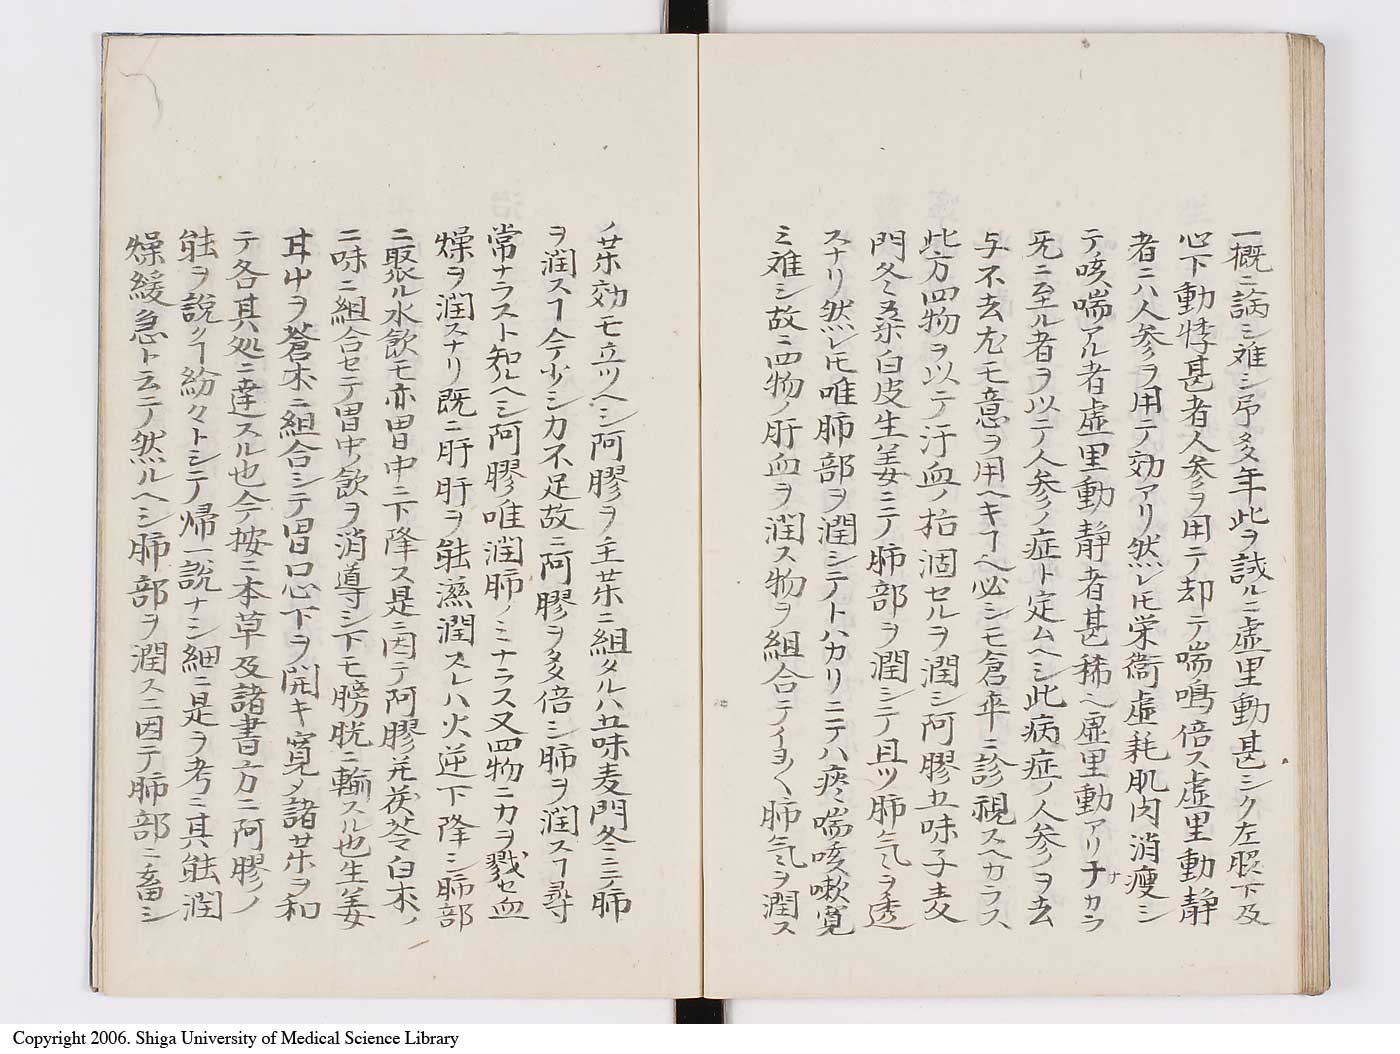 一概ニ論シ難シ予多年此ヲ試ルニ虚里動甚シク左脇下及
心下動悸甚者人参ヲ用テ却テ喘鳴倍ス虚里動静
者ニハ人参ヲ用テ効アリ然レ𪜈栄衛虚耗肌肉消痩シ
テ咳喘アル者虚里動静者甚稀ヘ虚里動アリナカラ
死ニ至ル者ヲ以テ人参ノ症ト定ムヘシ此病症ノ人参ノ去
与不去尤モ意ヲ用ヘキヿヘ必シモ倉卆ニ診視スヘカラス
此方四物ヲ以テ汗血ノ枯涸セルヲ潤シ阿膠五味子麦
門冬桒白皮生姜ニテ肺部ヲ潤シテ且ツ肺気ヲ透
スナリ然レ𪜈唯肺部ヲ潤シテトハカリニテハ痰喘咳嗽寛
ミ難シ故ニ四物ノ肝血ヲ潤ス物ヲ組合テイヨ〱肺気ヲ潤ス
ノ茱効モ立ツヘシ阿膠ヲ主茱ニ組タルハ五味麦門冬ニテ肺
ヲ潤スヿ今少シ力不足故ニ阿膠ヲ多倍シ肺ヲ潤スヿ尋
常ナラスト知ヘシ阿膠唯潤肺ノミナラス又四物ニ力ヲ戮セ血
燥ヲ潤スナリ既ニ肝肝ヲ能滋潤スレハ火逆下降シ肺部
ニ聚ル水飲モ亦胃中ニ下降ス是ニ因テ阿膠并茯苓白朮ノ
二味ニ組合セテ胃中ノ飲ヲ消導シ下モ膀胱ニ輸スル也生姜
耳屮ヲ蒼朮ニ組合シテ胃口心下ヲ開キ寛メ諸茱ヲ和
テ各其処ニ達スル也今按ニ本草及諸書方ニ阿膠ノ
能ヲ說クヿ紛々トシテ帰一說ナシ細ニ是ヲ考ニ其能潤
燥緩急ト云テ然ルヘシ肺部ヲ潤スニ因テ肺部ニ畜シ